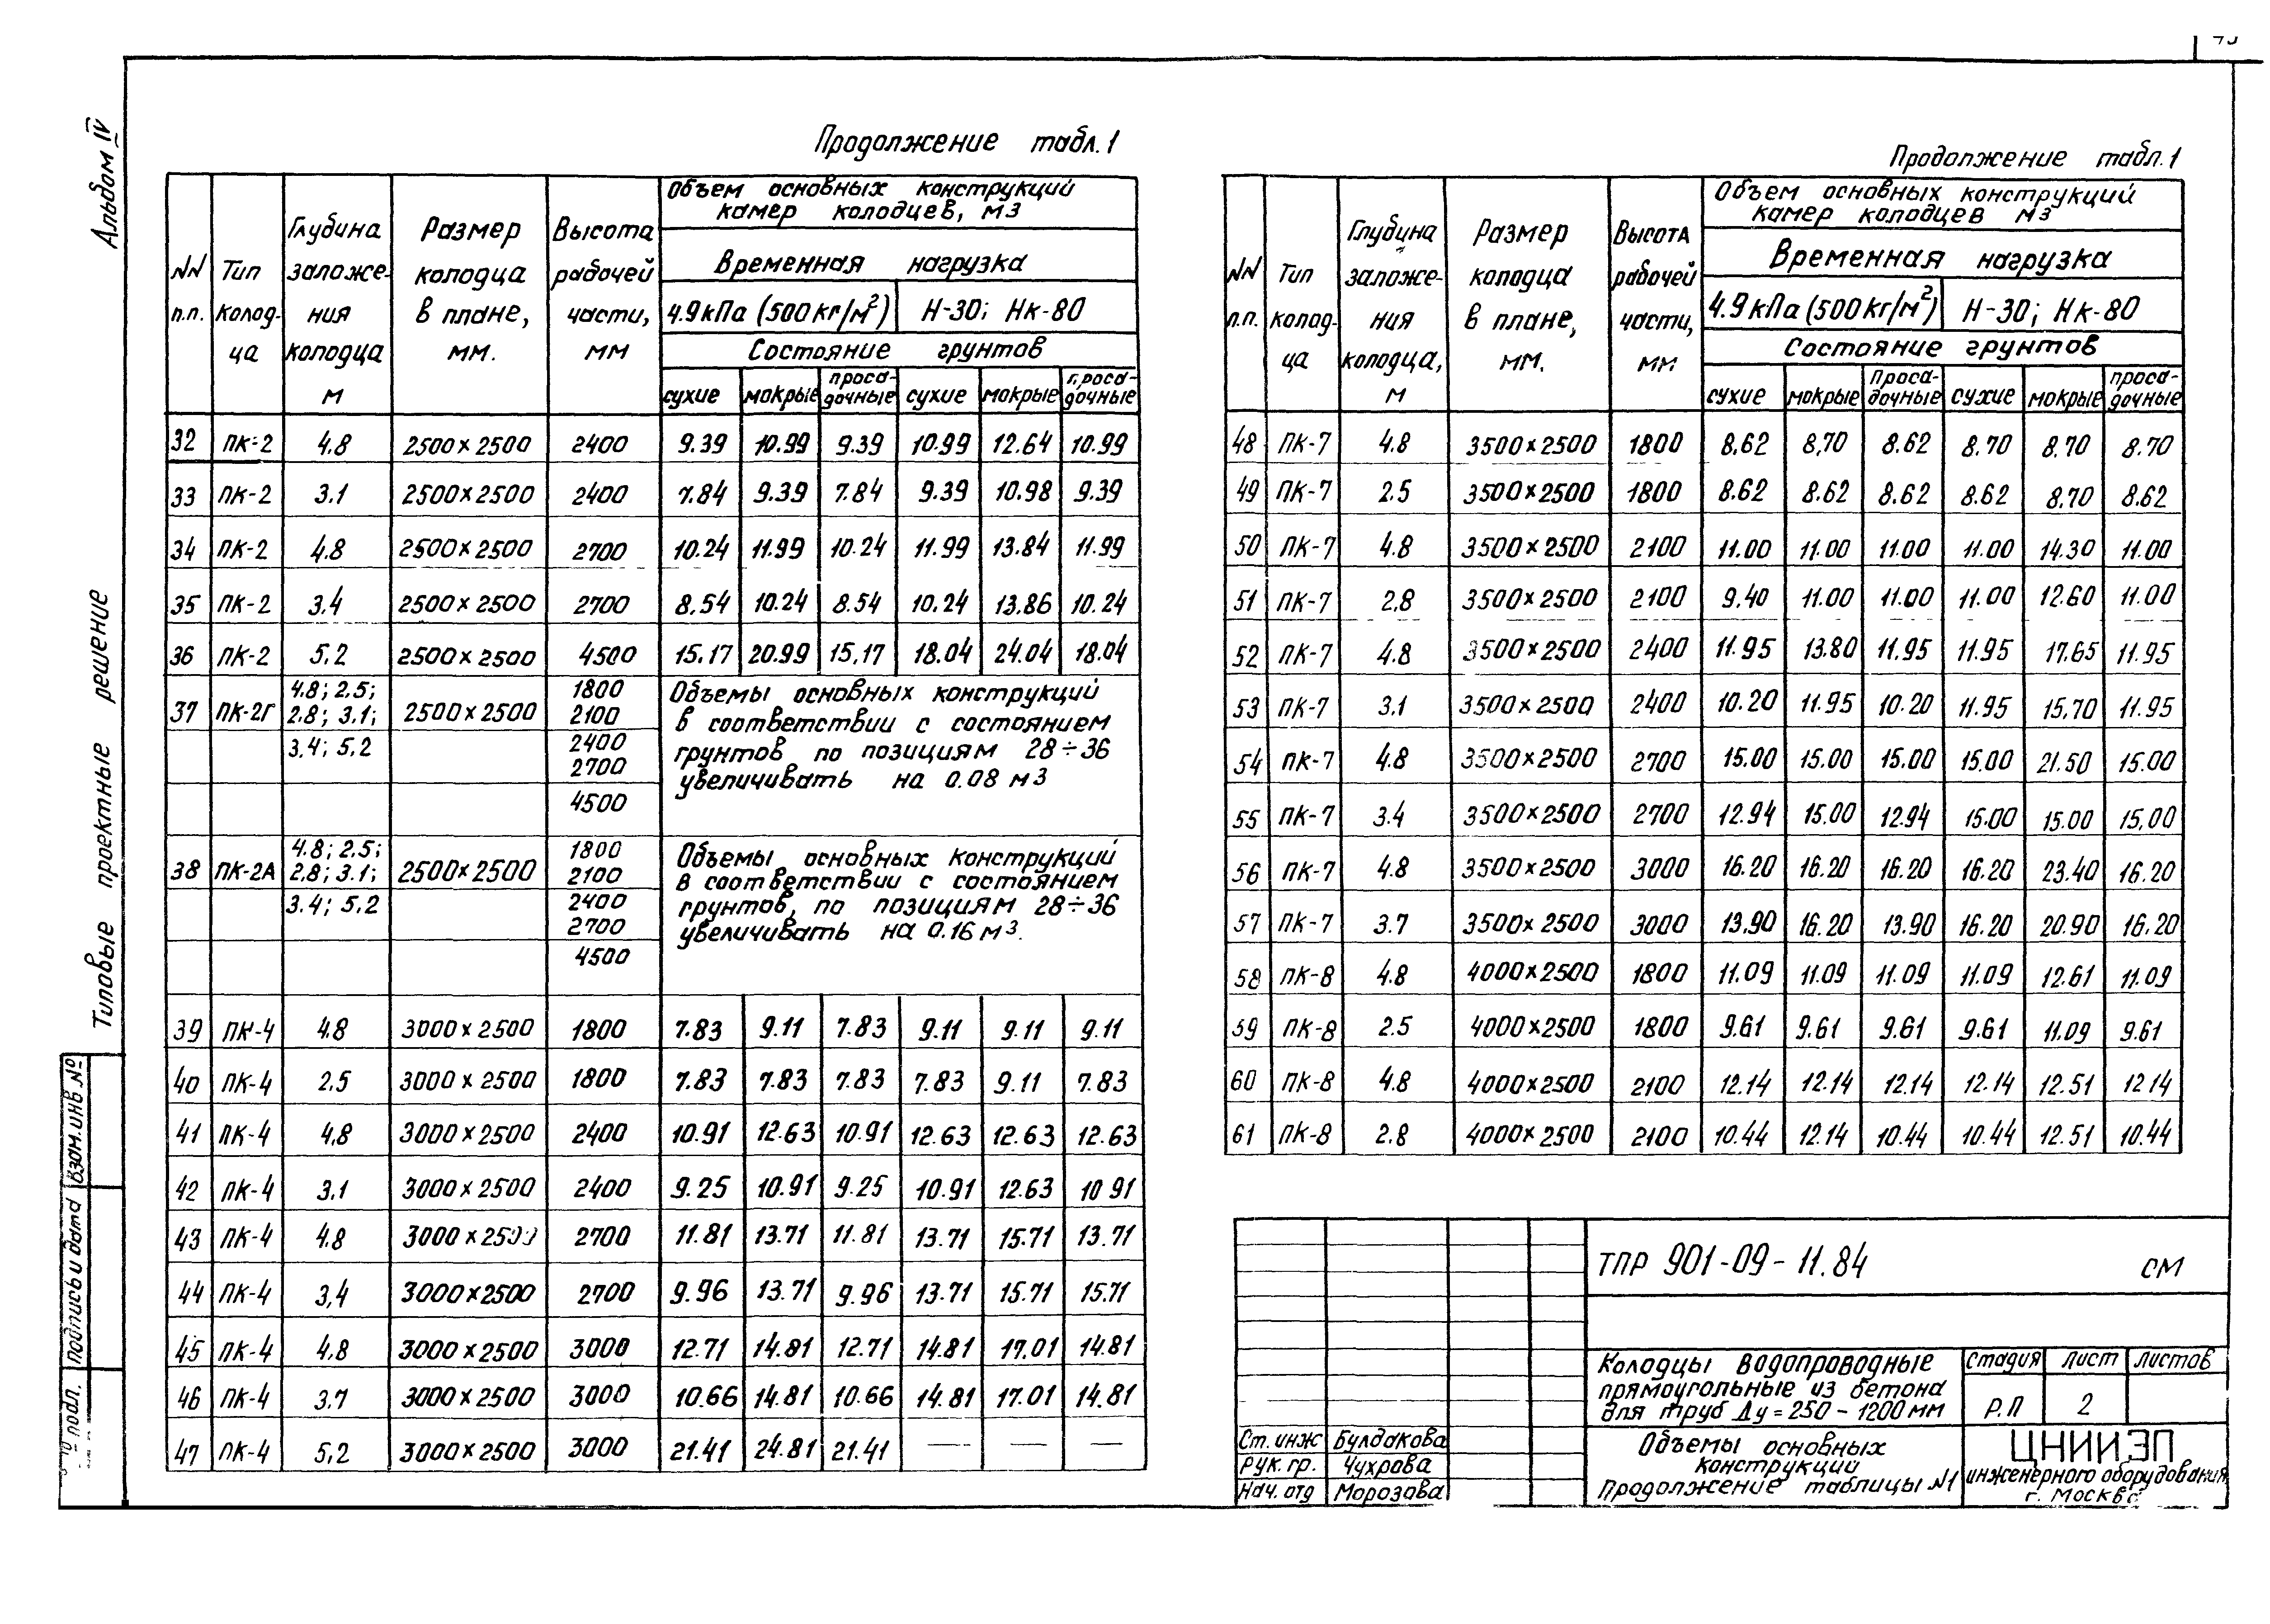 Альбом IV
Типовые проектные решение
Взам.инв.№
Подпись и дата
подл.
Продолжение табл.1
NN п.п. | Тип колод-ца | Глубина заложе-ния колодца м | Размер колодца в плане, мм. | Высота рабочей части, мм | Объем основных конструкций камер колодцев, м3
Временная нагрузка
4.9кПа (500кг/м²) | Н-30; Нк-80
Состояние грунтов
сухие | мокрые | проса-дочные | сухие | мокрые | проса-дочные
32 ПК-2 4.8 2500×2500 2400 9.39 10.99 9.39 10.99 12.64 10.99
33 ПК-2 3.1 2500×2500 2400 7.84 9.39 7.84 9.39 10.98 9.39
34 ПК-2 4.8 2500×2500 2700 10.24 11.99 10.24 11.99 13.84 11.99
35 ПК-2 3.4 2500×2500 2700 8.54 10.24 8.54 10.24 13.86 10.24
36 ПК-2 5.2 2500×2500 4500 15.17 20.99 15.17 18.04 24.04 18.04
37 ПК-2г 4.8; 2.5; 2.8; 3.1; 3.4; 5.2 2500×2500 1800 2100 2400 2700 4500
Объемы основных конструкций
в соответствии с состоянием
грунтов по позициям 28÷36
увеличивать на 0.08 м3
38 ПК-2А 4.8; 2.5; 2.8; 3.1; 3.4; 5.2 2500×2500 1800 2100 2400 2700 4500
Объемы основных конструкций
в соответствии с состоянием
грунтов, по позициям 28÷36
увеличивать на 0.16 м3.
39 ПК-4 4.8 3000×2500 1800 7.83 9.11 7.83 9.11 9.11 9.11
40 ПК-4 2.5 3000×2500 1800 7.83 7.83 7.83 7.83 9.11 7.83
41 ПК-4 4.8 3000×2500 2400 10.91 12.63 10.91 12.63 12.63 12.63
42 ПК-4 3.1 3000×2500 2400 9.25 10.91 9.25 10.91 12.63 10 91
43 ПК-4 4.8 3000×2500 2700 11.81 13.71 11.81 13.71 15.71 13.71
44 ПК-4 3.4 3000×2500 2700 9.96 13.71 9.96 13.71 15.71 15.71
45 ПК-4 4.8 3000×2500 3000 12.71 14.81 12.71 14.81 17.01 14.81
46 ПК-4 3.7 3000×2500 3000 10.66 14.81 10.66 14.81 17.01 14.81
47 ПК-4 5.2 3000×2500 3000 21.41 24.81 21.41 — — —
Продолжение табл.1
NN п.п. | Тип колод-ца | Глубина заложе-ния колодца, м | Размер колодца в плане, мм. | Высота рабочей части, мм | Объем основных конструкций камер колодцев м3
Временная нагрузка
4.9кПа (500кг/м²) | Н-30; Нк-80
Состояние грунтов
сухие | мокрые | проса-дочные | сухие | мокрые | проса-дочные
48 ПК-7 4.8 3500×2500 1800 8.62 8.70 8.62 8.70 8.70 8.70
49 ПК-7 2.5 3500×2500 1800 8.62 8.62 8.62 8.62 8.70 8.62
50 ПК-7 4.8 3500×2500 2100 11.00 11.00 11.00 11.00 14.30 11.00
51 ПК-7 2.8 3500×2500 2100 9.40 11.00 11.00 11.00 12.60 11.00
52 ПК-7 4.8 3500×2500 2400 11.95 13.80 11.95 11.95 17.65 11.95
53 ПК-7 3.1 3500×2500 2400 10.20 11.95 10.20 11.95 15.70 11.95
54 ПК-7 4.8 3500×2500 2700 15.00 15.00 15.00 15.00 21.50 15.00
55 ПК-7 3.4 3500×2500 2700 12.94 15.00 12.94 15.00 15.00 15.00
56 ПК-7 4.8 3500×2500 3000 16.20 16.20 16.20 16.20 23.40 16.20
57 ПК-7 3.7 3500×2500 3000 13.90 16.20 13.90 16.20 20.90 16.20
58 ПК-8 4.8 4000×2500 1800 11.09 11.09 11.09 11.09 12.61 11.09
59 ПК-8 2.5 4000×2500 1800 9.61 9.61 9.61 9.61 11.09 9.61
60 ПК-8 4.8 4000×2500 2100 12.14 12.14 12.14 12.14 12.51 12 14
61 ПК-8 2.8 4000×2500 2100 10.44 12.14 10.44 10.44 12.51 10.44
ТПР 901-09-11.84 СМ
Колодцы водопроводные
прямоугольные из бетона
для труб Ду=250-1200мм
Стадия Лист Листов
Р.П 2
Ст. инж Булдакова
Рук. гр. Чухрова
Нач. отд Морозова
Объемы основных
конструкции
Продолжение таблицы N1
ЦНИИЭП
инженерного оборудования
г. Москва